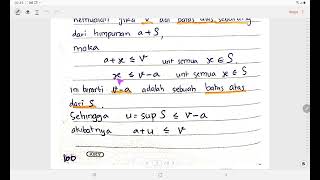 kemudian jika v adl batas atas sebarang
dari himpunan a + S,
maka
a + x ≤ v unt semua x ∈ S
x ≤ v - a unt semua x ∈ S
ini berarti v - a adalah sebuah batas atas
dari S.
Sehingga u = sup S ≤ v - a
akibatnya a + u ≤ v